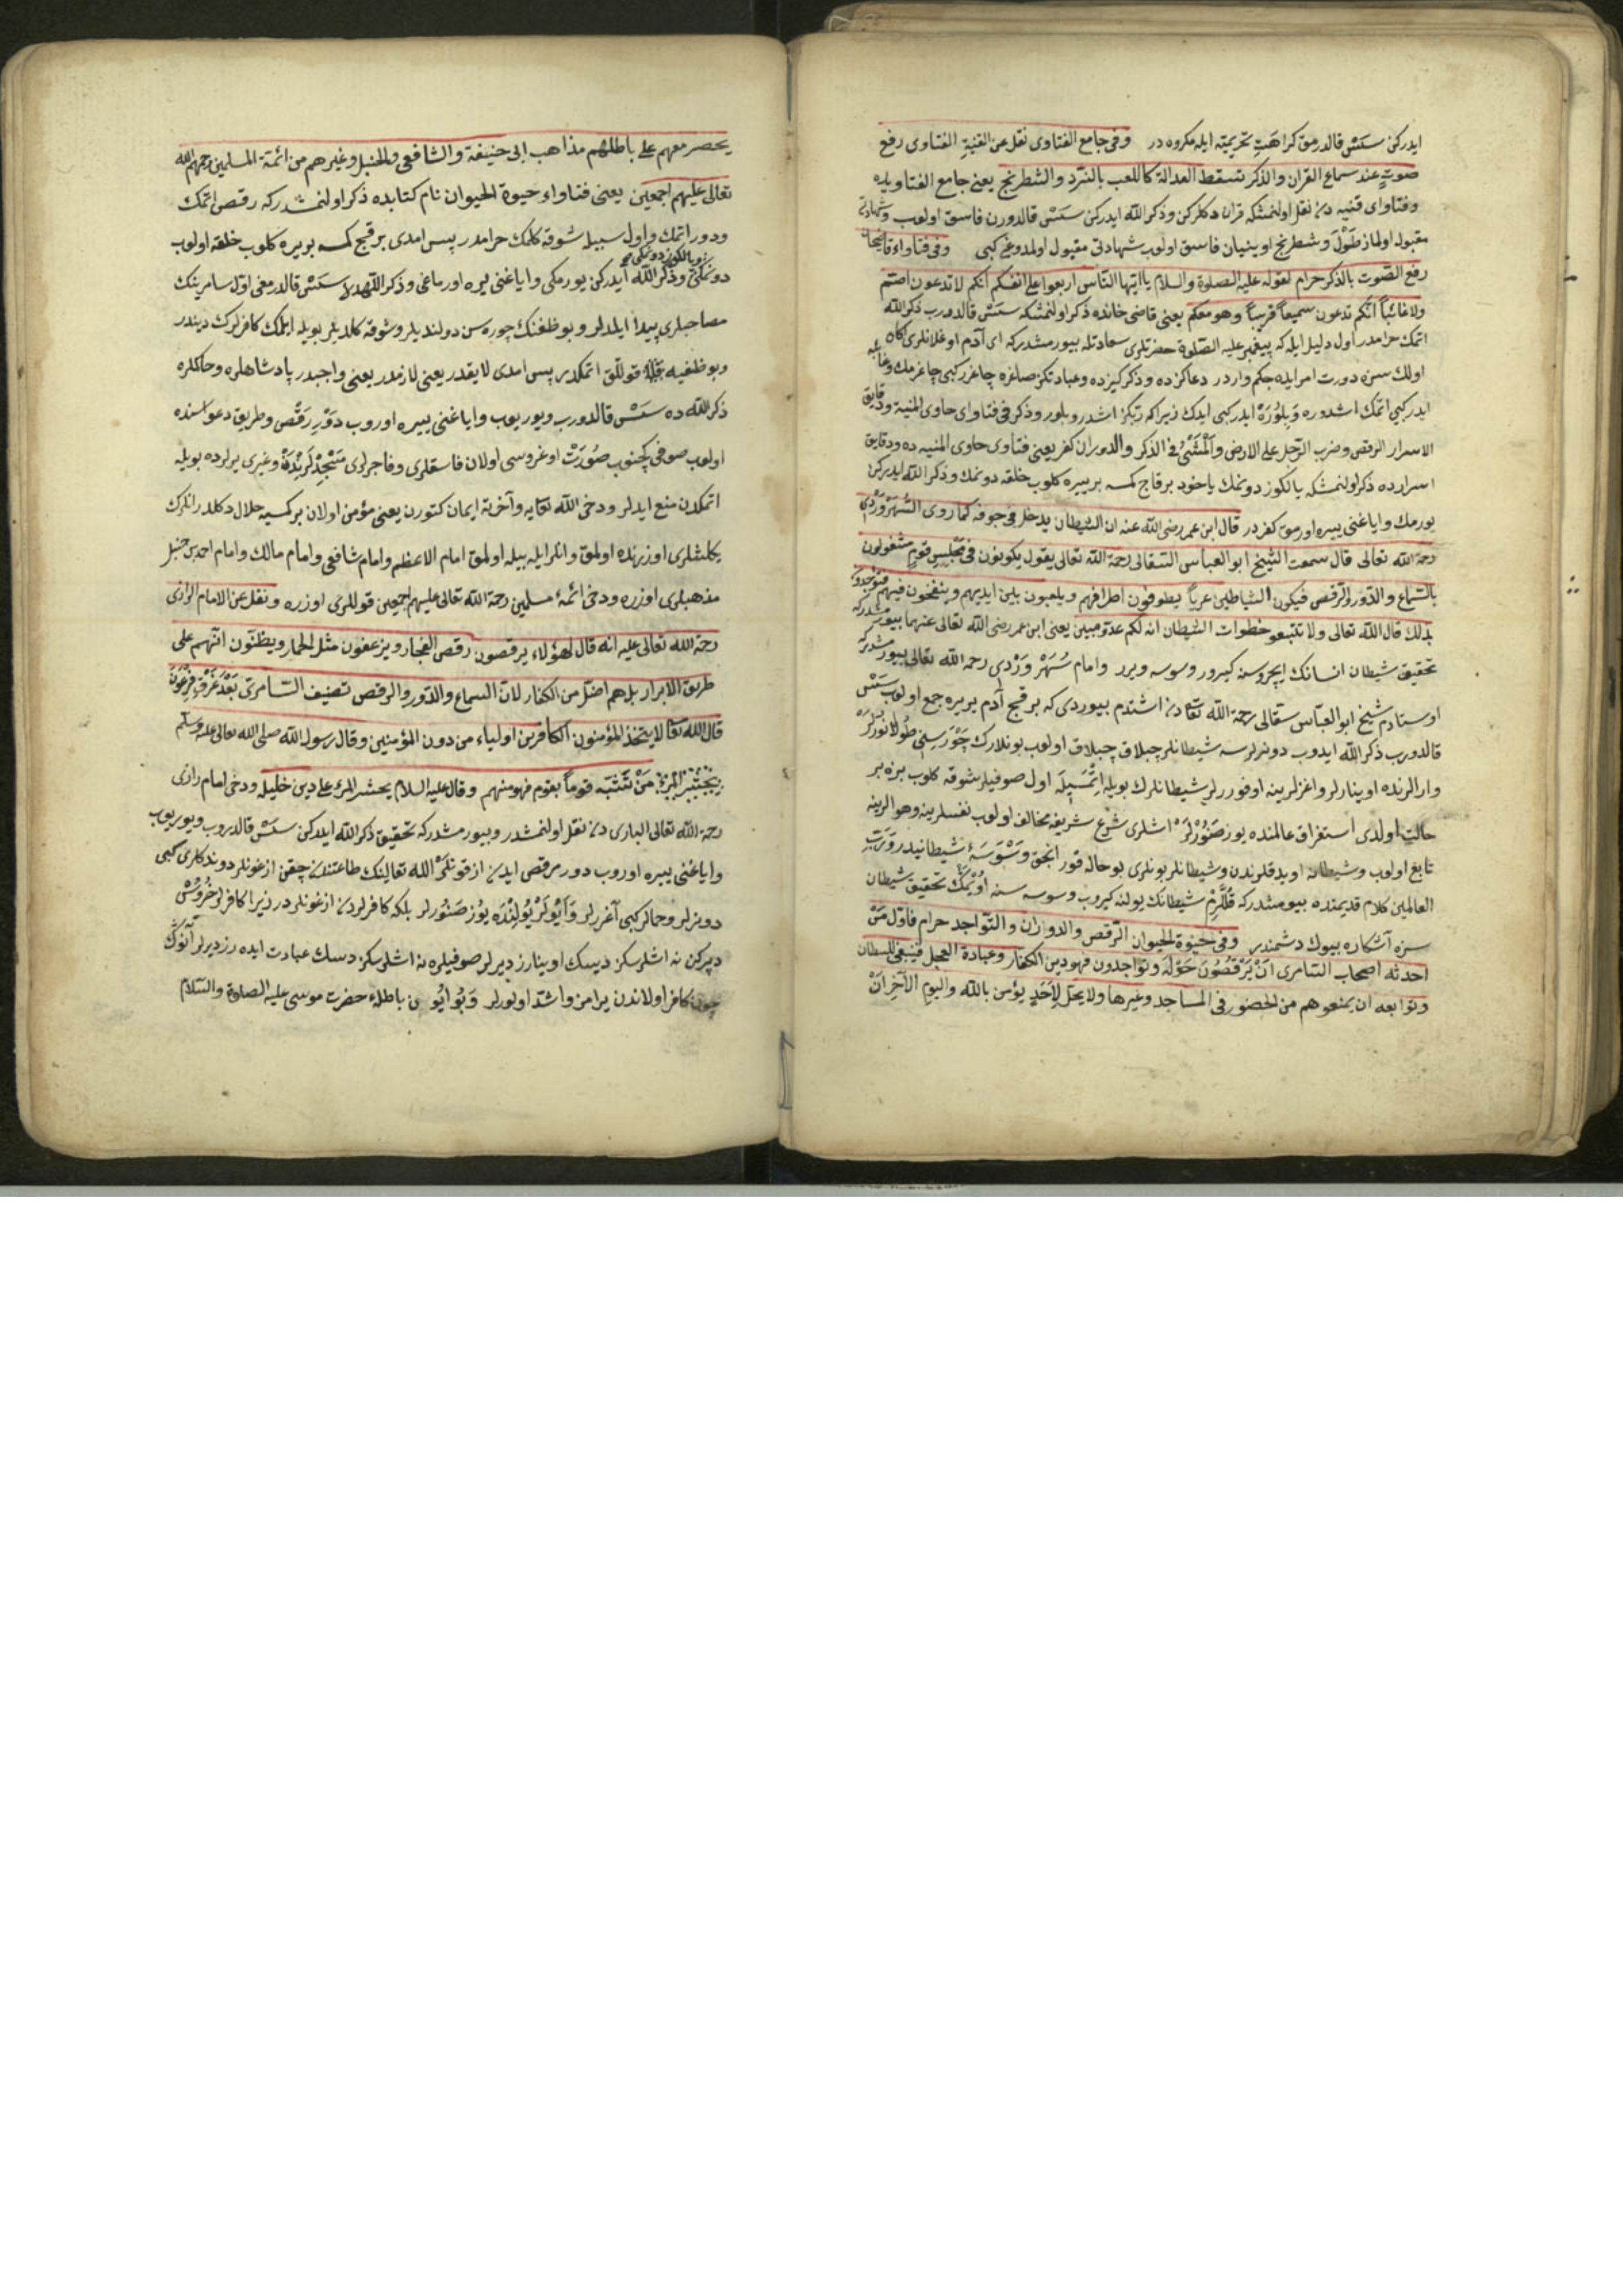 ايدركن سسن قالدرمق كراهت تحريميه ايله مكروه در وفى جامع الفتاوى نقل عن القنية الفتاوى رفع
صوت عند سماع القران والذكر تسقط العدالة كاللعب بالنرد والشطرنج يعنى جامع الفتاويده
وفتاواى قنيه دن نقل اولنمشكه قران دكلركن وذكر الله ايدركن سسن قالدورن فاسق اولوب وشهادتى
مقبول اولماز طولى وشطرنج اوينيان فاسق اولوب شهادتى مقبول اولمدوغى كبى وفى فتاواء قاضيخان
رفع الصوت بالذكر حرام لقوله عليه الصلوة والسلام ياايها الناس اربعوا على انفسكم انكم لا تدعون اصم
ولا غائبا انكم تدعون سميعا قريبا وهو معكم يعنى قاضى خانده ذكر اولنمشكه سسن قالدورب ذكر الله
اتمك حرامدر اول دليل ايله كه پيغمبر عليه الصلوة حضرتلرى سعادتله بيورمشدركه اى آدم اوغلانلرى
اولك سزه دورت امر ايله حكم واردر دعاكزده وذكركيزده وعبادتكز صاغره چاغرركبى چاغرمك
ايدركبى اتمك اشدوره وبلوره ايدركبى ايدك زيراكه ربكز اشدر وبلور وذكر فى فتاواى حاوى المنية ودقايق
الاسرار الرقص وضرب الرجل على الارض والمشى فى الذكر والدوران كفر يعنى فتاوى حاوى المنيه ده ودقايق
اسرارده ذكر اولنمشكه يالكوز دونمك ياخود برقاج كمسه بر ييره كلوب حلقه دونمك وذكر الله ايدركن
يورمك واياغنى ييره اورمق كفردر قال ابن عمر رضى الله عنه ان الشيطان يدخل فى جوفه كما روى السهروردى
رحمة الله تعالى قال سمعت الشيخ ابو العباس السقالى رحمة الله تعالى يقول يكونون فى مجلس قوم مشغولون
بالسماع والدور والرقص فيكون الشياطين عريا يطوفون اطرافهم ويلعبون بين ايديهم وينفخون فيهم
بذلك قال الله تعالى ولا تتبعو خطوات الشيطان انه لكم عدو مبين يعنى ابن عمر رضى الله تعالى عنهما بيورمشدركه
تحقيق شيطان انسانك ايچروسنه كيرور وسوسه ويرر وامام سهروردى رحمه الله تعالى بيورمشدركه
اوستادم شيخ ابو العباس سقالى رحمة الله تعادن اشتدم بيوردى كه برقچ آدم بريره جمع اولوب سسن
قالدورب ذكر الله ايدوب دونرلرسه شيطانلر چبلاق چبلاق اولوب بونلارك چوره سنى طولانورلر
وارالرنده اوينارلر واغزلرينه اوفوررلر شيطانلرك بويله اتمسيله اول صوفيلر شوقه كلوب بزه بر
حالت اولدى استغراق عالمنده يوز صنورلر اشلرى شرع شريفه مخالف اولوب نفسلرينه وهوالرينه
تابع اولوب وشيطانه اويدقلرندن وشيطانلر بونلرى بو حاله قور انجق وسوسۀ شيطانيدر ورب
العالمين كلام قديمنده بيورمشدركه قللرم شيطانك يولنه كيروب وسوسه سنه اويمك تحقيق شيطان
سزه آشكاره بيوك دشمندر وفى حيوة الحيوان الرقص والدوران والتواجد حرام فاول من
احدثه اصحاب السامرى ان يرقصون حوله وتواجدون فهو دين الكفار وعبادة العجل فينبغى للسلطان
وتوابعه ان يمنعوهم من الحضور فى المساجد وغيرها ولا يحل لاحد يؤمن بالله واليوم الآخر ان
يحضر معهم على باطلهم مذاهب ابى حنيفة والشافعى والحنبل وغيرهم من ائمة المسلمين رحمهم الله
تعالى عليهم اجمعين يعنى فتاواء حيوة الحيوان نام كتابده ذكر اولنمشدركه رقص اتمك
ودور اتمك واول سبيله شوقه كلمك حرامدر پس امدى برقچ كمسه بريره كلوب حلقه اولوب
دونمكى وذكر الله ايدركن يورمكى واياغنى ييره اورماغى وذكر اللهده سسن قالدرمغى اول سامرينك
مصاحبلرى پيدا ايلديلر وبوظغنك چوره سن دولنديلر وشوقه كلديلر بويله ايلمك كافرلرك دينيدر
وبوظغيه قوللق اتمكدر پس امدى لايقدر يعنى لازمدر يعنى واجبدر پادشاهلره وحاكملره
ذكر الله ده سسن قالدورب ويوريوب واياغنى ييره اوروب دور رقص وطريق دعواسنده
اولوب صوفى كچنوب صورت اوغروسى اولان فاسقلرى وفاجرلرى مسجدلرنده وغيرى يرلرده بويله
اتمكدن منع ايدلر ودخى الله تعايه وآخرته ايمان كتورن يعنى مؤمن اولان بركمسيه حلال دكلدر انلرك
يكلشلرى اوزرنده اولمق وانلر ايله بيله اولمق امام الاعظم وامام شافعى وامام مالك وامام احمد بن حنبل
مذهبلرى اوزره ودخى ائمۀ مسلمين رحمة الله تعالى عليهم اجمعين قوللرى اوزره ونقل عن الامام الرازى
رحمة الله تعالى عليه انه قال لهؤلاء يرقصون رقص الفجار ويزعقون مثل الحمار ويظنون انهم على
طريق الابرار بل هم اضل من الكفار لان السماع والدور والرقص تصنيف السامرى بعد غرق فرعون
قال الله تعا لا يتخذ المؤمنون الكافرين اولياء من دون المؤمنين وقال رسول الله صلى الله تعالى عليه وسلم
من تشبه قوما بقوم فهو منهم وقال عليه السلام يحشر المرء على دين خليله ودخى امام رازى
رحمة الله تعالى البارى دن نقل اولنمشدر وبيورمشدركه تحقيق ذكر الله ايدركن سسن قالدروب ويوريوب
واياغنى ييره اوروب دور رقص ايدن ازقونلر الله تعالينك طاعتندن چقن ازغونلر دوندكلرى كبى
دونرلر وحمالر كبى آغررلر وايولر يولنده يوز صنورلر بلكه كافرلردن ازغونلردر زيرا كافرلر
ديركن نه اشلرسكز ديسك اوينارز ديرلر صوفيلره نه اشلرسكز دسك عبادت ايده رز ديرلر آنوك
چون كافر اولاندن يرامز واشد اولورلر وبو ايو ن باطله حضرت موسى عليه الصلوة والسلام